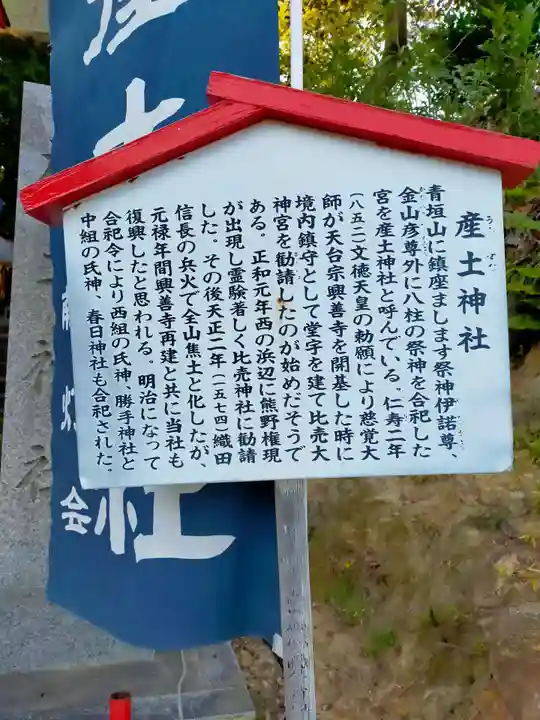 産土神社
うぶすな
青垣山に鎮座まします祭神伊諾尊、
金山彦尊外に八柱の祭神を合祀した
宮を産土神社と呼んでいる。仁寿二年
(八五二)文徳天皇の勅願により慈覚大
師が天台宗興善寺を開基した時に
境内鎮守として堂宇を建て比売大
神宮を勧請したのが始めだそうで
ある。正和元年西の浜辺に熊野権現
が出現し霊験著しく比売神社に勧請
した。その後天正二年(一五七四)織田
信長の兵火で全山焦土と化したが、
元禄年間興善寺再建と共に当社も
復興したと思われる。明治になって
合祀令により西組の氏神、勝手神社と
中組の氏神、春日神社も合祀された。
産土
社
会